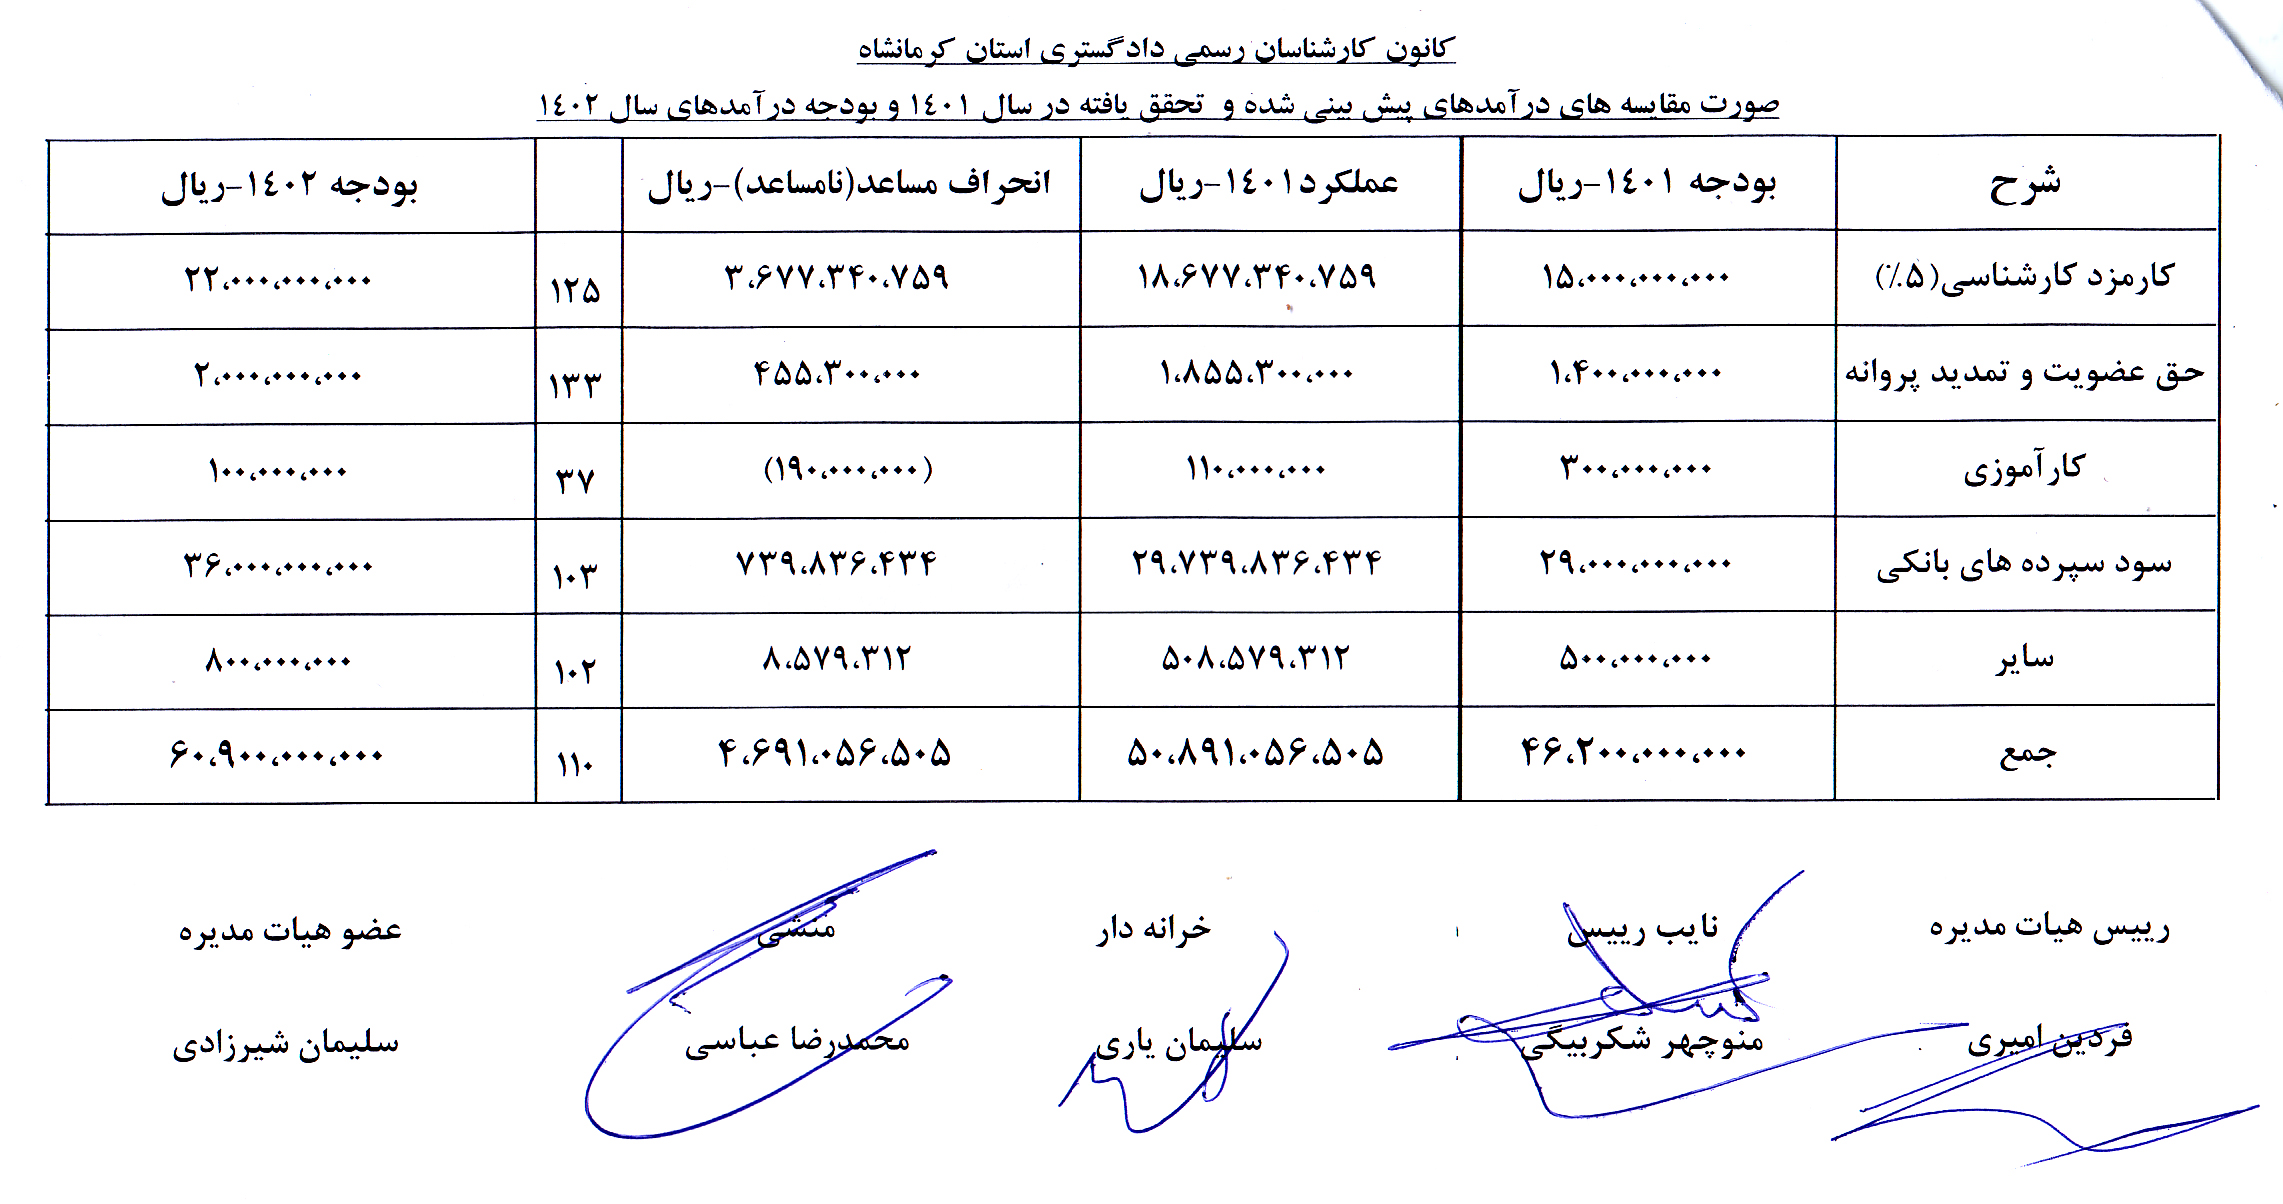 کانون کارشناسان رسمی دادگستری استان کرمانشاه
صورت مقایسه های درآمدهای پیش بینی شده و تحقق یافته در سال ۱٤۰۱ و بودجه درآمدهای سال ۱٤۰۲
شرح بودجه ۱٤۰۱-ریال عملکرد۱٤۰۱-ریال انحراف مساعد(نامساعد)-ریال بودجه ۱٤۰۲-ریال
کارمزد کارشناسی(۵٪) ۱۵،۰۰۰،۰۰۰،۰۰۰ ۱۸،۶۷۷،۳۴۰،۷۵۹ ۳،۶۷۷،۳۴۰،۷۵۹ ۱۲۵ ۲۲،۰۰۰،۰۰۰،۰۰۰
حق عضویت و تمدید پروانه ۱،۴۰۰،۰۰۰،۰۰۰ ۱،۸۵۵،۳۰۰،۰۰۰ ۴۵۵،۳۰۰،۰۰۰ ۱۳۳ ۲،۰۰۰،۰۰۰،۰۰۰
کارآموزی ۳۰۰،۰۰۰،۰۰۰ ۱۱۰،۰۰۰،۰۰۰ (۱۹۰،۰۰۰،۰۰۰) ۳۷ ۱۰۰،۰۰۰،۰۰۰
سود سپرده های بانکی ۲۹،۰۰۰،۰۰۰،۰۰۰ ۲۹،۷۳۹،۸۳۶،۴۳۴ ۷۳۹،۸۳۶،۴۳۴ ۱۰۳ ۳۶،۰۰۰،۰۰۰،۰۰۰
سایر ۵۰۰،۰۰۰،۰۰۰ ۵۰۸،۵۷۹،۳۱۲ ۸،۵۷۹،۳۱۲ ۱۰۲ ۸۰۰،۰۰۰،۰۰۰
جمع ۴۶،۲۰۰،۰۰۰،۰۰۰ ۵۰،۸۹۱،۰۵۶،۵۰۵ ۴،۶۹۱،۰۵۶،۵۰۵ ۱۱۰ ۶۰،۹۰۰،۰۰۰،۰۰۰
رییس هیات مدیره نایب رییس خرانه دار منشی عضو هیات مدیره
فردین امیری منوچهر شکربیگی سلیمان یاری محمدرضا عباسی سلیمان شیرزادی